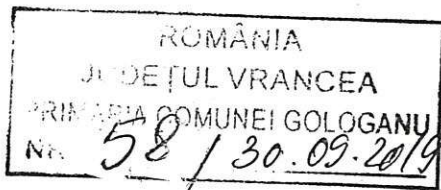 ROMÂNIA
JUDEȚUL VRANCEA
PRIMĂRIA COMUNEI GOLOGANU
NR. 58 / 30.09.2019